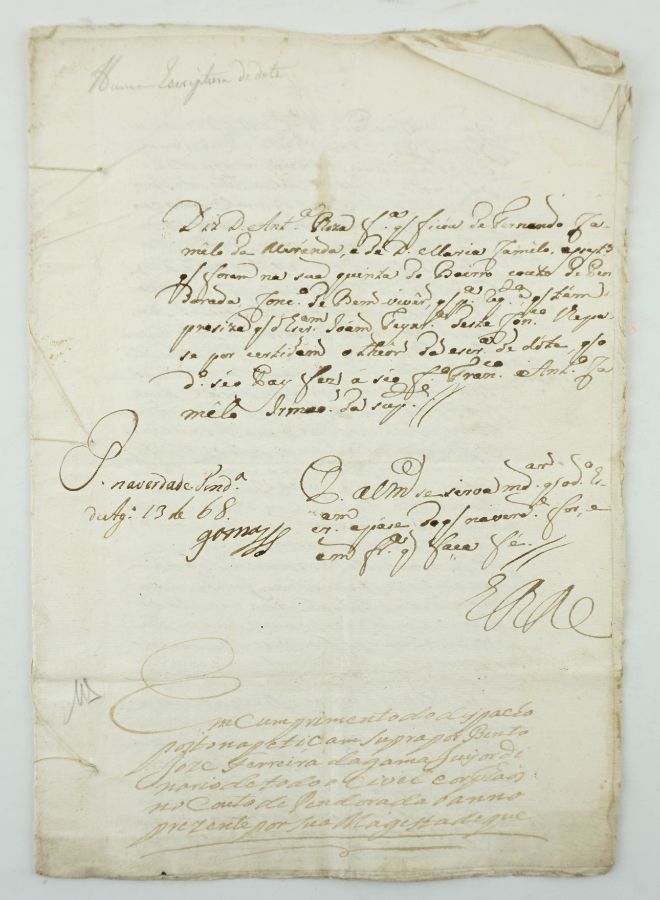 Huma Escriptura de dote
Diz D. Ant.ª Roza f.ª q̃ ficou de Fernando Ja-
mêlo da Merenda, e de D. Maria Jamêlo,
q̃ foram na sua quinta do Bairro couto de Pen
dorada, Conc.º de Bem viver, q̃ p.ª
presiza q̃ o Escr.am Joam desta Pa-
se por certidam o theôr da escr.ª de dóte, q̃ o
d.º séo Pay fez á séo f.º Fran.co e Ant.º Ja-
mêlo Irmão da sup.e
P. na verdade Pend.ª
de Ag.º 13 de 68.
gomes
P. a V.M. se sirva md.ar q̃ o d.º Es-
cr.am a páse do q̃ na verd.e for, e
em fr.ª q̃ faça fé.
E R M.ce
Em Cumprimento do dispacho
posto na peticam supra por Bento
Joze Ferreira da gama Juis ordi
nario de todo o Civel e orfaos
no Couto de Pendorada o anno
prezente por sua Magestade que